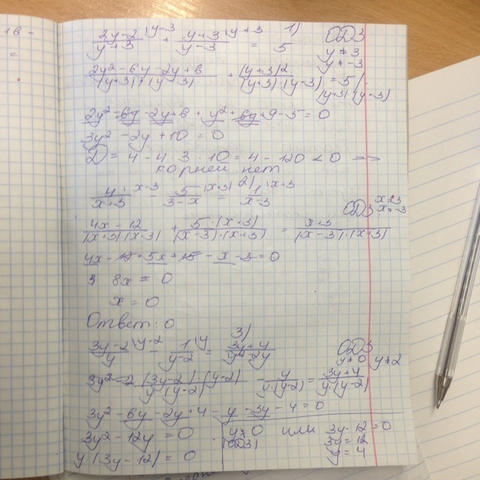 1)
(2y-2)/(y+3) \y-3 + (y+3)/(y-3) \y+3 = 5 ОДЗ
y ≠ 3
y ≠ -3
(2y²-6y-2y+6)/((y+3)·(y-3)) + (y+3)²/((y+3)·(y-3)) = 5 |·(y+3)·(y-3)
2y²-6y-2y+6+y²+6y+9-5=0
3y²-2y+10=0
D=4-4·3·10=4-120<0 =>
корней нет
2)
4/(x+3) \x-3 - 5/(3-x) \x+3 = 1/(x-3) \x+3
ОДЗ x≠3 x≠-3
(4x-12)/((x+3)·(x-3)) + 5·(x+3)/((x-3)·(x+3)) = (x+3)/((x-3)·(x+3))
4x-12+5x+15-x-3=0
8x=0
x=0
Ответ: 0
3)
(3y-2)/y \y-2 - 1/(y-2) \y = (3y+4)/(y²-2y) ОДЗ
y≠0 y≠2
(3y-2)·(y-2)/(y·(y-2)) - y/(y·(y-2)) = (3y+4)/(y·(y-2))
3y²-6y-2y+4-y-3y-4=0
3y²-12y=0 y≠0 (ОДЗ) или 3y-12=0
3y=12
y(3y-12)=0 y=4